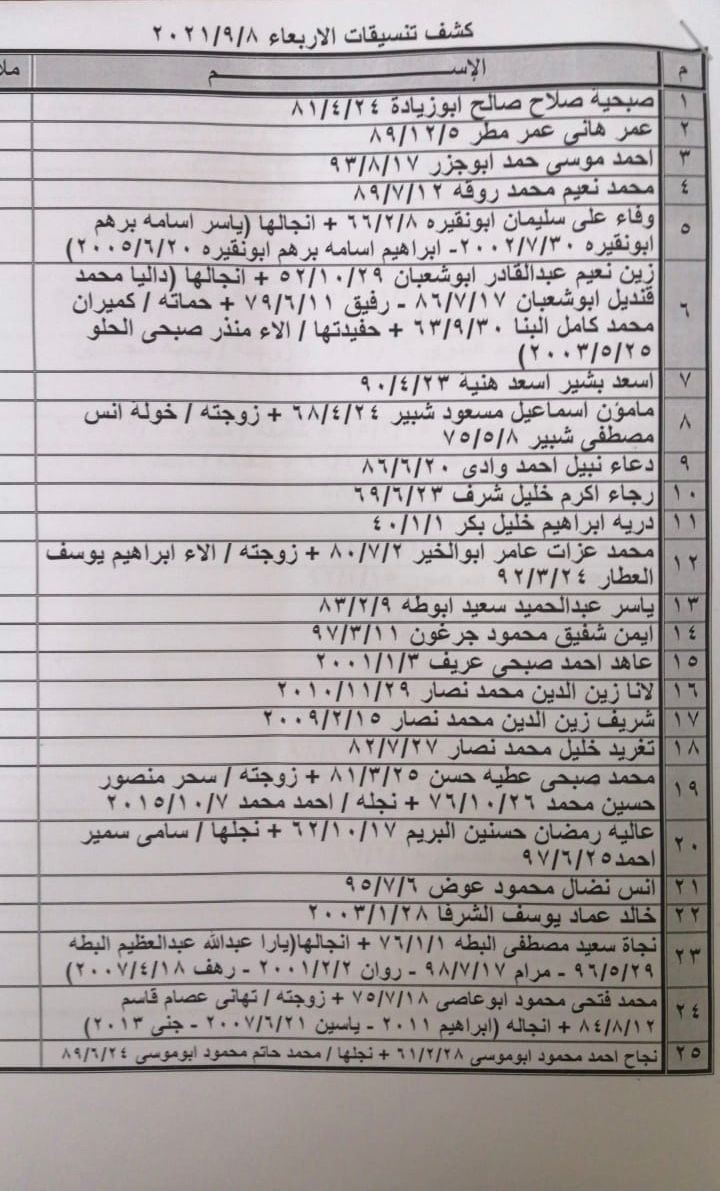 كشف تنسيقات الاربعاء ٢٠٢١/٩/٨
م الإســـــــــم ملا
١ صبحية صلاح صالح ابوزيادة ٨١/٤/٢٤
٢ عمر هانى عمر مطر ٨٩/١٢/٥
٣ احمد موسى حمد ابوجزر ٩٣/٨/١٧
٤ محمد نعيم محمد روقه ٨٩/٧/١٢
٥ وفاء على سليمان ابونقيره ٦٦/٢/٨ + انجالها (ياسر اسامه برهم
ابونقيره ٢٠٠٢/٧/٣٠- ابراهيم اسامه برهم ابونقيره ٢٠٠٥/٦/٢٠)
٦ زين نعيم عبدالقادر ابوشعبان ٥٢/١٠/٢٩ + انجالها (داليا محمد
قنديل ابوشعبان ٨٦/٧/١٧ - رفيق ٧٩/٦/١١ + حماته / كميران
محمد كامل البنا ٦٣/٩/٣٠ + حفيدتها / الاء منذر صبحى الحلو
٢٠٠٣/٥/٢٥)
٧ اسعد بشير اسعد هنية ٩٠/٤/٢٣
٨ مامؤن اسماعيل مسعود شبير ٦٨/٤/٢٤ + زوجته / خولة انس
مصطفى شبير ٧٥/٥/٨
٩ دعاء نبيل احمد وادى ٨٦/٦/٢٠
١٠ رجاء اكرم خليل شرف ٦٩/٦/٢٣
١١ دريه ابراهيم خليل بكر ٤٠/١/١
١٢ محمد عزات عامر ابوالخير ٨٠/٧/٢ + زوجته / الاء ابراهيم يوسف
العطار ٩٢/٣/٢٤
١٣ ياسر عبدالحميد سعيد ابوطه ٨٣/٢/٩
١٤ ايمن شفيق محمود جرغون ٩٧/٣/١١
١٥ عاهد احمد صبحى عريف ٢٠٠١/١/٣
١٦ لانا زين الدين محمد نصار ٢٠١٠/١١/٢٩
١٧ شريف زين الدين محمد نصار ٢٠٠٩/٢/١٥
١٨ تغريد خليل محمد نصار ٨٢/٧/٢٧
١٩ محمد صبحى عطيه حسن ٨١/٣/٢٥ + زوجته / سحر منصور
حسين محمد ٧٦/١٠/٢٦ + نجله / احمد محمد ٢٠١٥/١٠/٧
٢٠ عاليه رمضان حسنين البريم ٦٢/١٠/١٧ + نجلها / سامى سمير
احمد٩٧/٦/٢٥
٢١ انس نضال محمود عوض ٩٥/٧/٦
٢٢ خالد عماد يوسف الشرفا ٢٠٠٣/١/٢٨
٢٣ نجاة سعيد مصطفى البطه ٧٦/١/١ + انجالها(يارا عبدالله عبدالعظيم البطه
٩٦/٥/٢٩ - مرام ٩٨/٧/١٧ - روان ٢٠٠١/٢/٢ - رهف ٢٠٠٧/٤/١٨)
٢٤ محمد فتحى محمود ابوعاصى ٧٥/٧/١٨ + زوجته / تهانى عصام قاسم
٨٤/٨/١٢ + انجاله (ابراهيم ٢٠١١ - ياسين ٢٠٠٧/٦/٢١ - جنى ٢٠١٣)
٢٥ نجاح احمد محمود ابوموسى ٦١/٢/٢٨ + نجلها / محمد حاتم محمود ابوموسى ٨٩/٦/٢٤